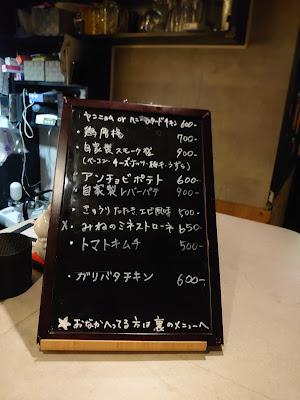 ・ヤンニョム or ハニーマスタードチキン 600-
・鶏唐揚 700-
・自家製スモーク盛 900-
(ベーコン・チーズ・ナッツ・鴨・うずら)
・アンチョビポテト 600-
・自家製レバーパテ 900-
・きゅうりたたき エビ風味 500-
x・みねのミネストローネ 650-
・トマトキムチ 500-
・ガリバタチキン 600-
★おなかへってる方は裏のメニューへ